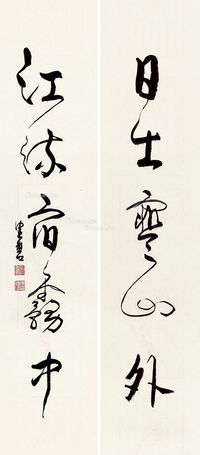 日出寒山外
江流宿霧中